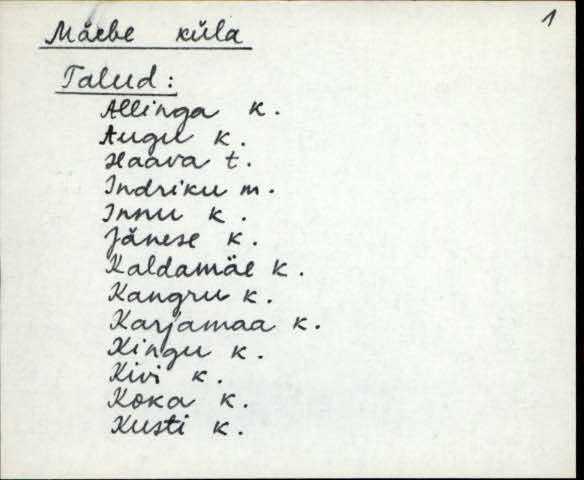 1
Mäebe küla
Talud:
Allinga k.
Augu k.
Haava t.
Indriku m.
Innu k.
Jänese k.
Kaldamäe k.
Kangru k.
Karjamaa k.
Kingu k.
Kivi k.
Koka k.
Kusti k.